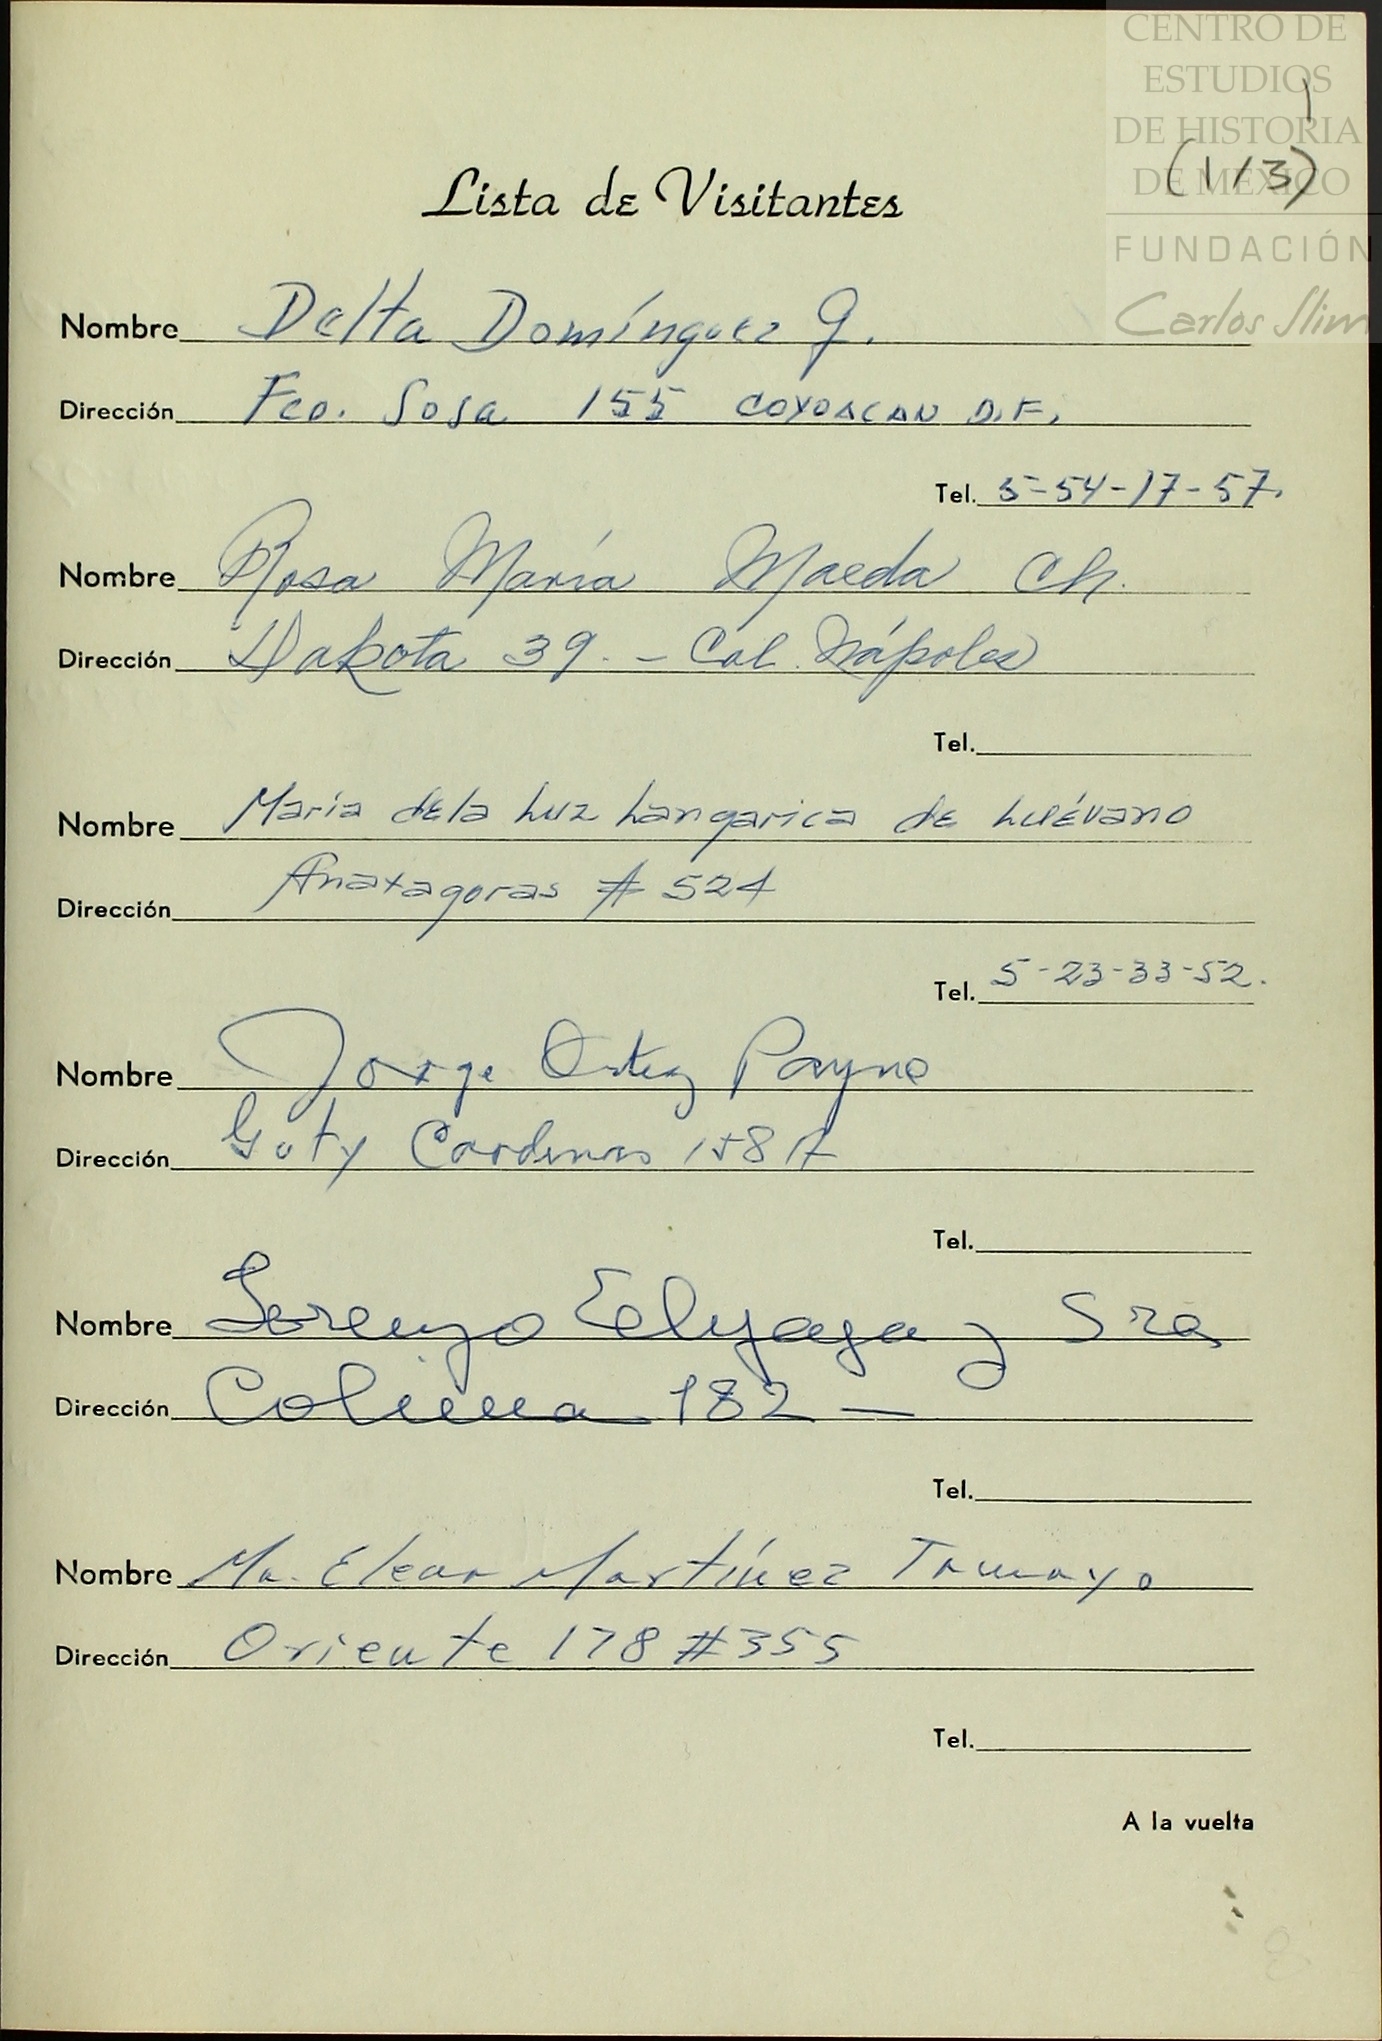 CENTRO DE
ESTUDIOS
DE HISTORIA
DE MÉXICO
FUNDACIÓN
Carlos Slim
)
(1/3)
Lista de Visitantes
Nombre Delta Domínguez G.
Dirección Fco. Sosa 155 COYOACAN D.F.
Tel. 5-54-17-57.
Nombre Rosa María Maeda Ch.
Dirección Dakota 39.- Col. Nápoles
Tel.
Nombre María de la Luz Langarica de Luévano
Dirección Anaxagoras # 524
Tel. 5-23-33-52.
Nombre Jorge Ortiz Payno
Dirección Guty Cardenas 158 A
Tel.
Nombre Lorenzo y Sra
Dirección Colima 182 —
Tel.
Nombre Ma. Elena Martínez Tamayo
Dirección Oriente 178 #355
Tel.
A la vuelta